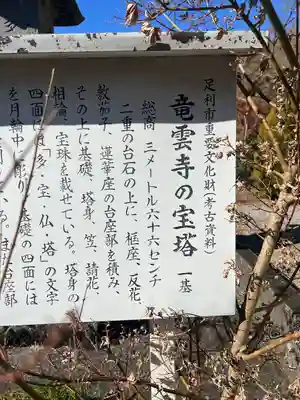 足利市重要文化財(考古資料)
竜雲寺の宝塔 一基
総高 三メートル六十六センチ
二重の台石の上に、框座、反花、
敷茄子、蓮華座の台座部を積み、
その上に基礎、塔身、笠、請花、
相輪、宝珠を載せている。塔身の
四面には 多・宝・仏・塔の文字
を月輪中に彫り、基礎の四面には
台座部